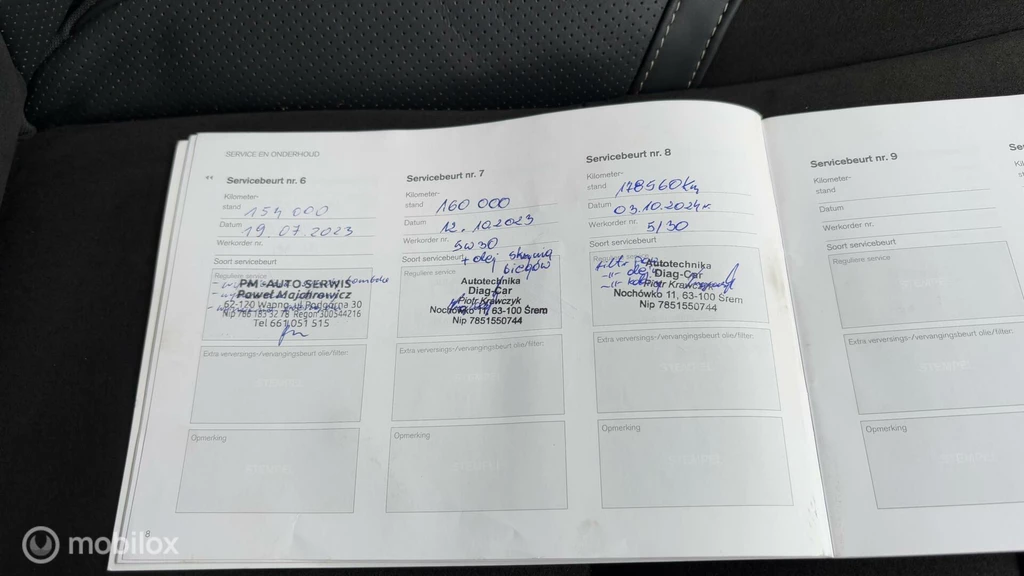 SERVICE EN ONDERHOUD
Servicebeurt nr. 6
Kilometer-
stand 154 000
Datum 19.07.2023
Werkorder nr.
Soort servicebeurt
Reguliere service
PM-AUTO SERWIS
Paweł Majchrowicz
62-120 Wapno, ul. Podgórna 30
Nip 786 183 32 78 Regon 300544216
Tel 661 051 515
Extra verversings-/vervangingsbeurt olie/filter:
STEMPEL
Opmerking
STEMPEL
Servicebeurt nr. 7
Kilometer-
stand 160 000
Datum 12.10.2023
Werkorder nr. 5W30
Soort servicebeurt + olej skrzynia
biegów
Reguliere service
Autotechnika
Diag-Car
Piotr Krawczyk
Nochówko 11, 63-100 Śrem
Nip 7851550744
Extra verversings-/vervangingsbeurt olie/filter:
STEMPEL
Opmerking
STEMPEL
Servicebeurt nr. 8
Kilometer-
stand 178560 km
Datum 03.10.2024r.
Werkorder nr. 5/30
Soort servicebeurt
Reguliere service
filtr
Autotechnika
Diag-Car
Piotr Krawczyk
Nochówko 11, 63-100 Śrem
Nip 7851550744
Extra verversings-/vervangingsbeurt olie/filter:
STEMPEL
Opmerking
STEMPEL
Servicebeurt nr. 9
Kilometer-
stand
Datum
Werkorder nr.
Soort servicebeurt
Reguliere service
Extra verversings-/vervangingsbeurt olie/filter:
STEMPEL
Opmerking
STEMPEL
8
mobilox